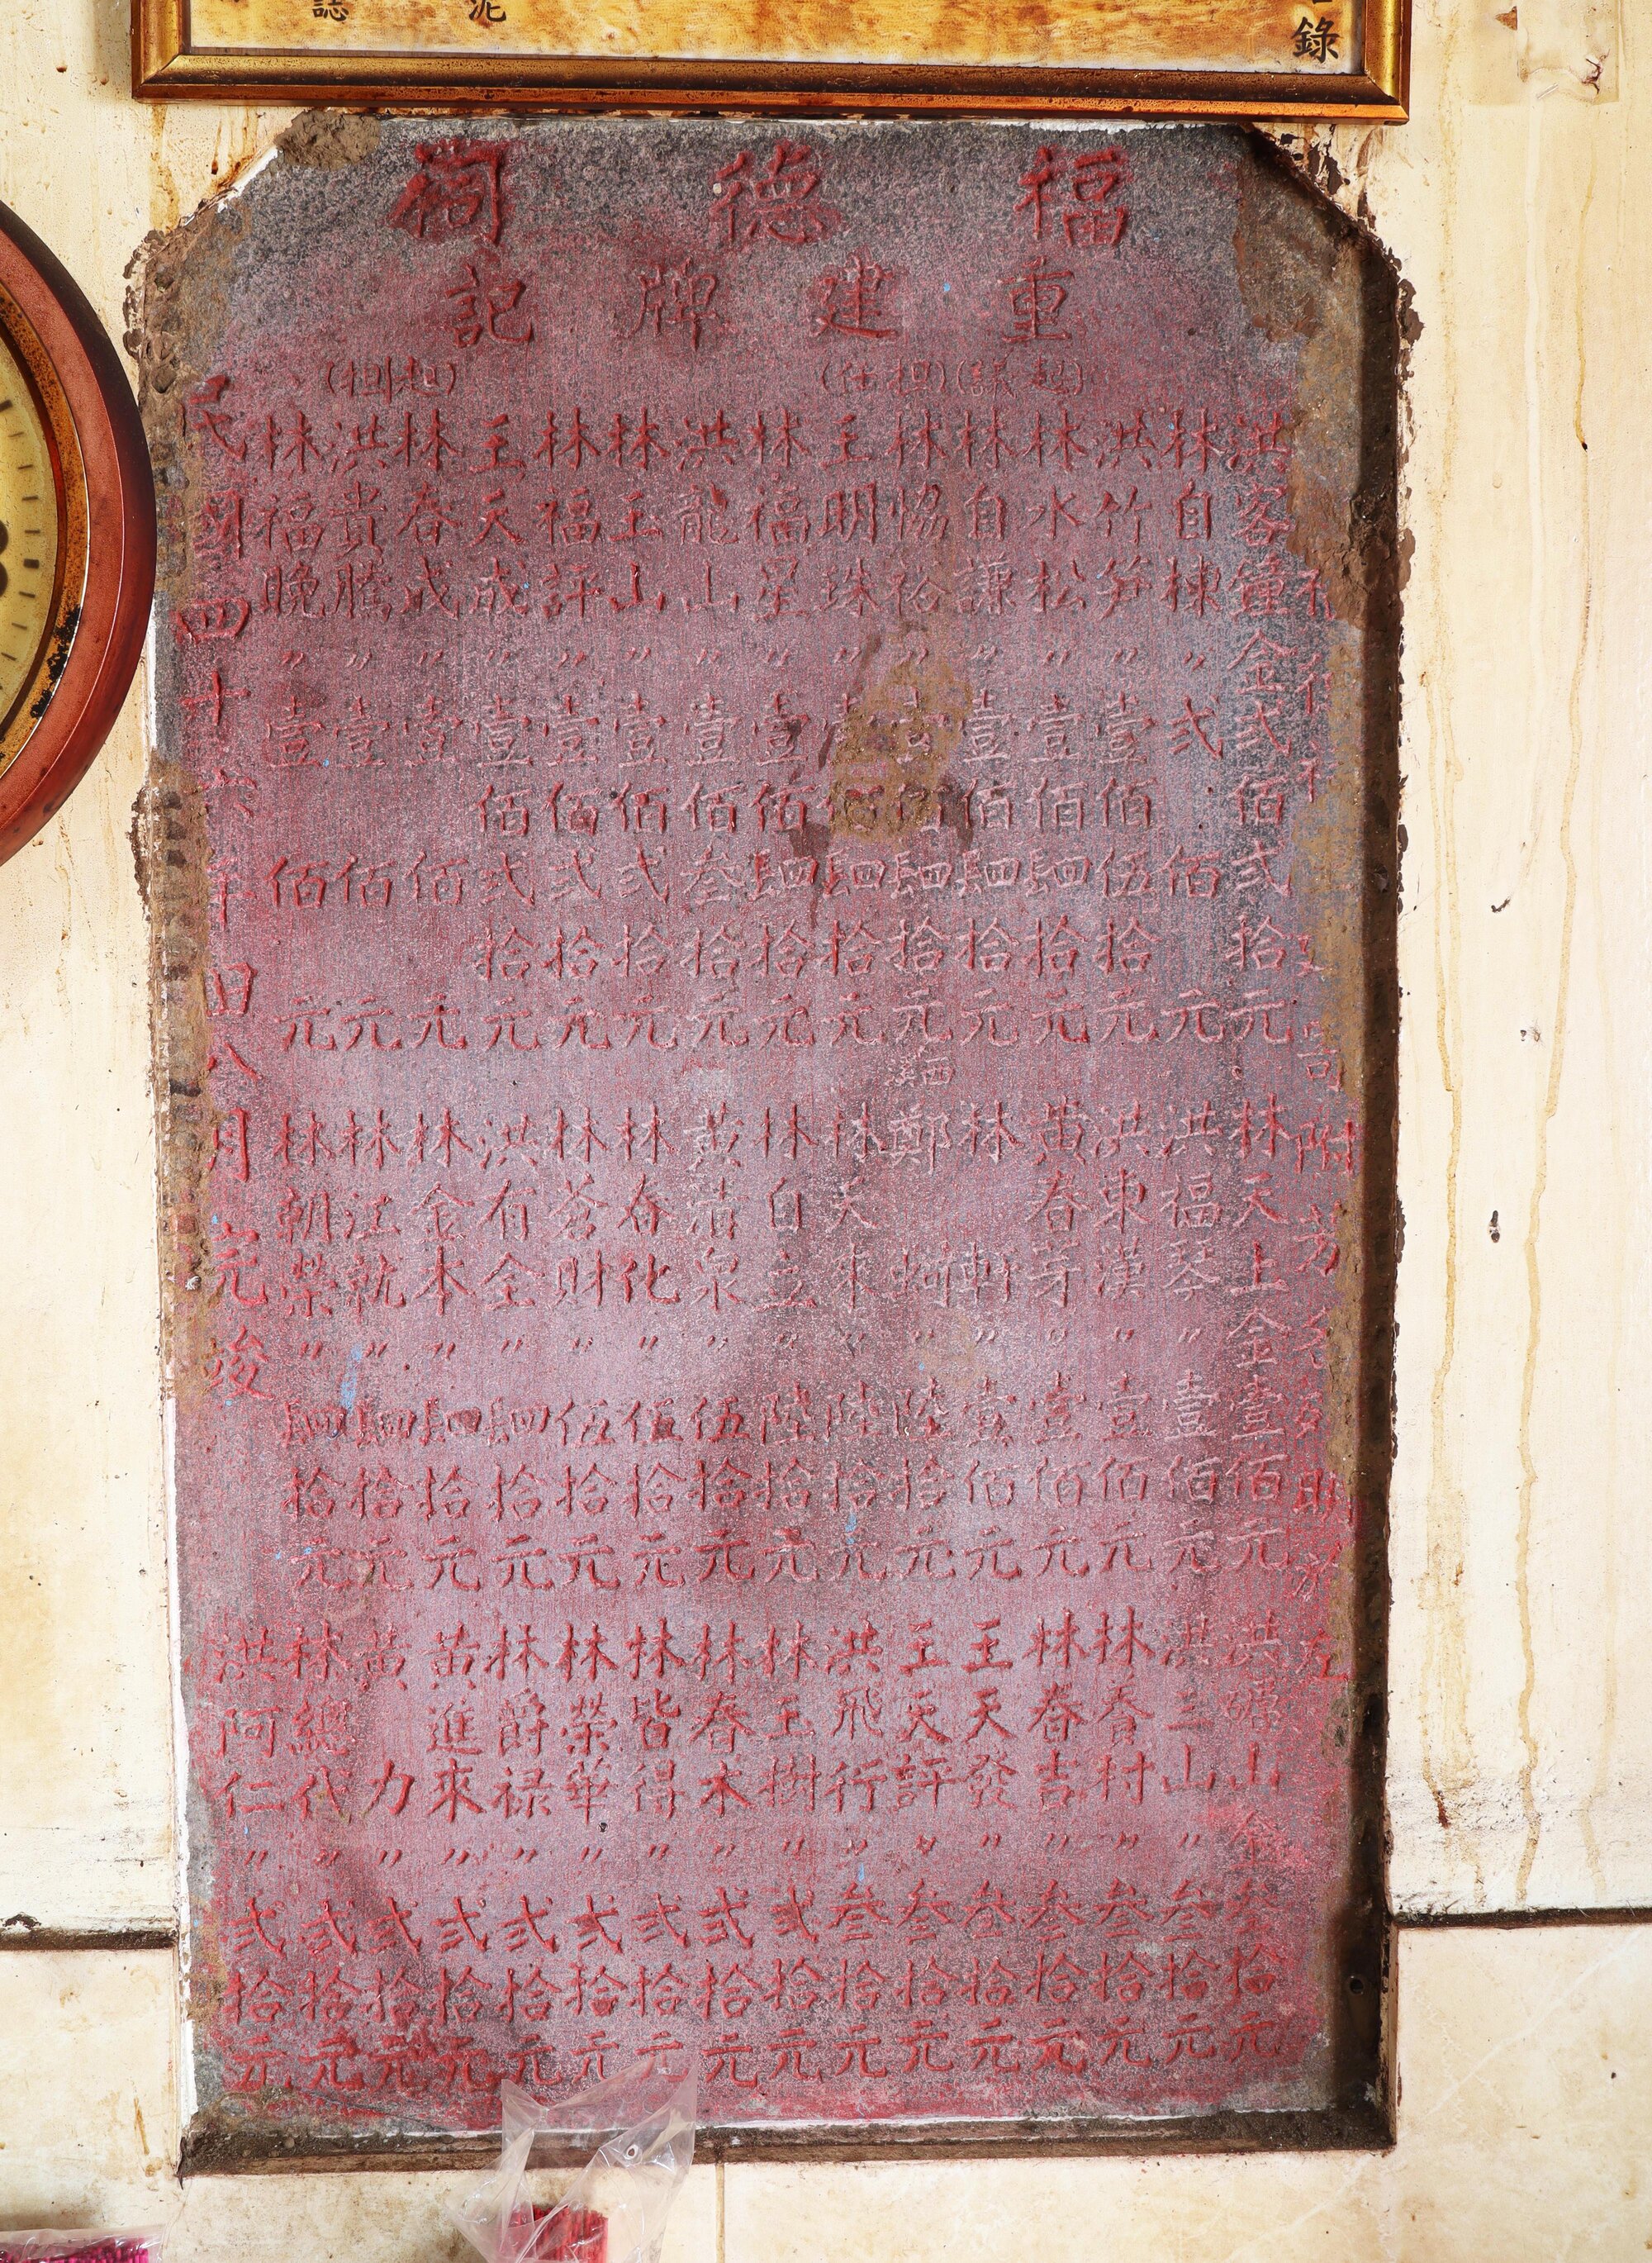 錄
泥
誌
福德祠
重建牌記
附芳名列明於左
(起議)
(担任)
(起担)
洪客鐘金弍佰弍拾元
林自棟〃弍佰元
洪竹笋〃壹佰伍拾元
林水松〃壹佰䦉拾元
林自謙〃壹佰䦉拾元
林恊裕〃壹佰䦉拾元
王明珠〃壹佰䦉拾元
林福星〃壹佰䦉拾元
洪龍山〃壹佰叁拾元
林玉山〃壹佰弍拾元
林福評〃壹佰弍拾元
王天成〃壹佰弍拾元
林春成〃壹佰元
洪貴騰〃壹佰元
林福晚〃壹佰元
林天上金壹佰元
洪福琴〃壹佰元
洪東漢〃壹佰元
黄春芽〃壹佰元
林軒〃壹佰元
溪西鄭〃陸拾元
林天來〃陸拾元
林自立〃陸拾元
黄清泉〃伍拾元
林奋化〃伍拾元
林蒼財〃伍拾元
洪有全〃䦉拾元
林金本〃䦉拾元
林江就〃䦉拾元
林朝榮〃䦉拾元
洪山金叁拾元
洪三山〃叁拾元
林春村〃叁拾元
林春吉〃叁拾元
王天發〃叁拾元
王天評〃叁拾元
洪飛行〃叁拾元
林玉樹〃弍拾元
林春木〃弍拾元
林皆得〃弍拾元
林榮華〃弍拾元
林爵禄〃弍拾元
黄進來〃弍拾元
黄力〃弍拾元
林總代〃弍拾元
洪阿仁〃弍拾元
民國四十六年旧八月完竣